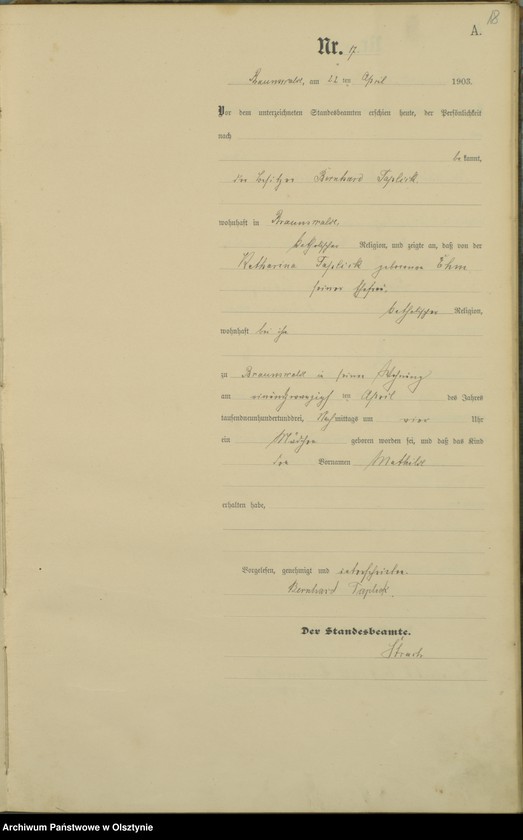 18
A.
Nr. 17.
Braunswalde, am 22 ten April 1903.
Vor dem unterzeichneten Standesbeamten erschien heute, der Persönlichkeit
nach
bekannt,
der Besitzer Bernhard
wohnhaft in Braunswalde,
katholischer Religion, und zeigte an, daß von der
Katharina geborenen Ehm
seiner Ehefrau,
katholischer Religion,
wohnhaft bei ihm
zu Braunswalde in seiner Wohnung
am einundzwanzigsten April des Jahres
tausendneunhundertunddrei, Nachmittags um vier Uhr
ein Mädchen geboren worden sei, und daß das Kind
den Vornamen Mathilde
erhalten habe,
Vorgelesen, genehmigt und unterschrieben.
Bernhard
Der Standesbeamte.
Archiwum Państwowe w Olsztynie